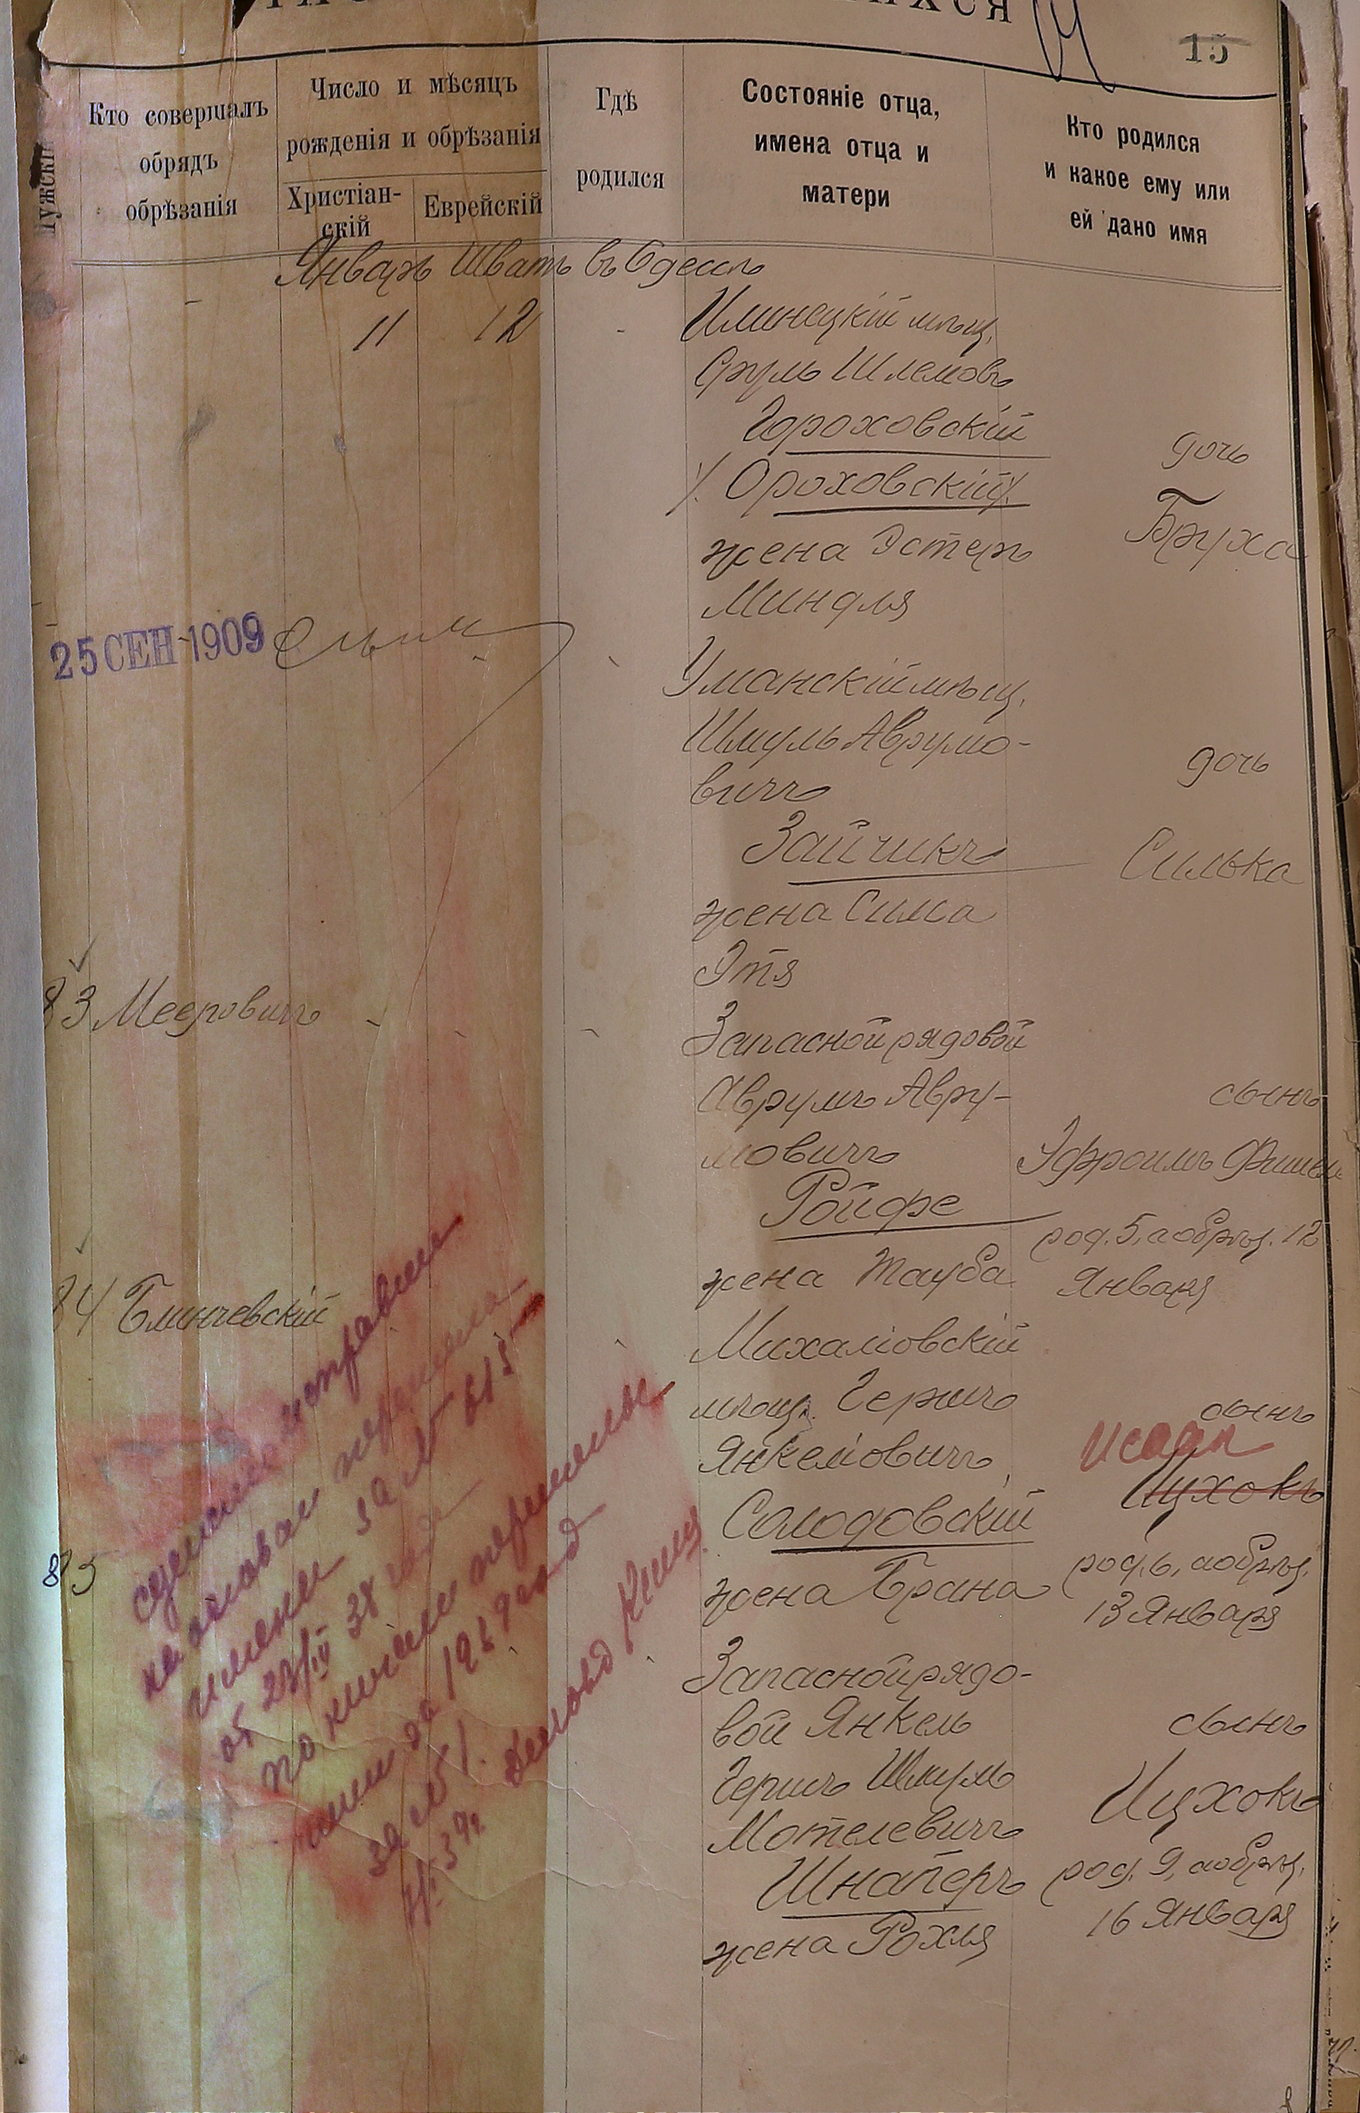 15
Кто совершалъ
обрядъ
обрѣзанія
Число и мѣсяцъ
рожденія и обрѣзанія
Христіан-
скій
Еврейскій
Гдѣ
родился
Состояніе отца,
имена отца и
матери
Кто родился
и какое ему или
ей дано имя
Январь Шватъ въ Одессѣ
11 12
Илинецкій мѣщ.
Сруль Шлемовъ
Гороховскій
Ороховскій
жена Эстеръ
Миндля
дочь
Бруха
25 СЕН 1909
Уманскій мѣщ.
Шмуль Аврумо-
вичъ
Зайчикъ
жена Сима
Этя
дочь
Силька
83 Мееровичъ
Запасной рядовой
Аврумъ Авру-
мовичъ
Ройфе
жена Тауба
сынъ
Эфроимъ Фишель
род. 5, а обрѣз. 12
Января
84 Блинчевскій
Михаловскій
мѣщ. Гершъ
Янкелевичъ
Солодовскій
жена Брана
сынъ
Исаак
Ицхокъ
род. 6, а обрѣз.
13 Января
85
Запасной рядо-
вой Янкель
Гершъ Шмуль
Мотелевичъ
Шнаперъ
жена Рохля
сынъ
Ицхокъ
род. 9, а обрѣз.
16 Января
имени за №
от 23/IV 38 года
по книге
за 1939 год
за № 1.